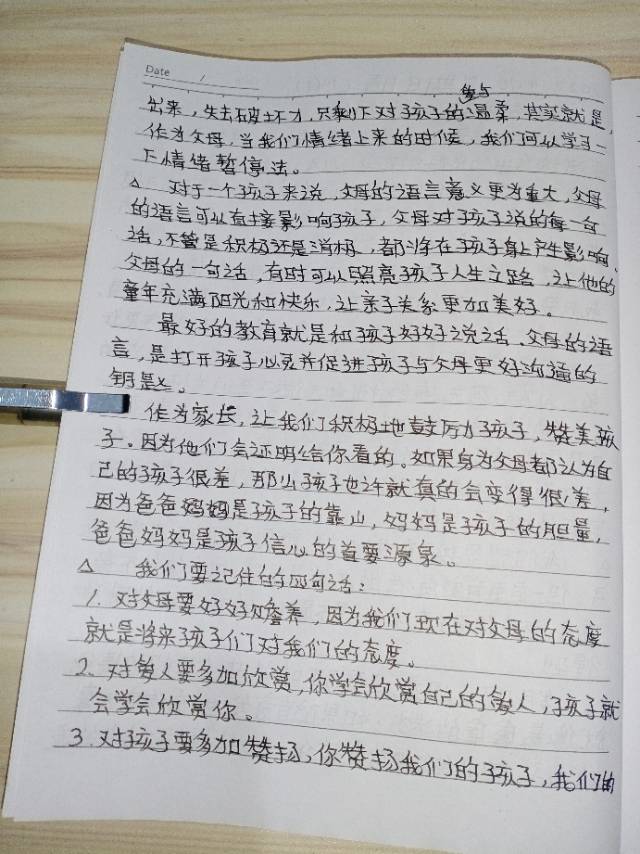 Date /
爱与
出来，失去破坏力，只剩下对孩子的温柔，其实就是，
作为父母，当我们情绪上来的时候，我们可以学习一
下情绪暂停法。
△ 对于一个孩子来说，父母的语言意义更为重大，父母
的语言可以直接影响孩子，父母对孩子说的每一句
话，不管是积极还是消极，都将在孩子身上产生影响，
父母的一句话，有时可以照亮孩子人生之路，让他的
童年充满阳光和快乐，让亲子关系更加美好。
最好的教育就是和孩子好好说话、父母的语
言，是打开孩子心灵并促进孩子与父母更好沟通的
钥匙。
作为家长，让我们积极地鼓厉力孩子，赞美孩
子。因为他们会证明给你看的。如果身为父母都认为自
己的孩子很差，那么孩子也许就真的会变得很差，
因为爸爸妈妈是孩子的靠山，妈妈是孩子的胆量，
爸爸妈妈是孩子信心的首要源泉。
△ 我们要记住的四句话：
1. 对父母要好好赡养，因为我们现在对父母的态度
就是将来孩子们对我们的态度。
2. 对爱人要多加欣赏，你学会欣赏自己的爱人，孩子就
会学会欣赏你。
3. 对孩子要多加赞扬，你赞扬我们的孩子，我们的